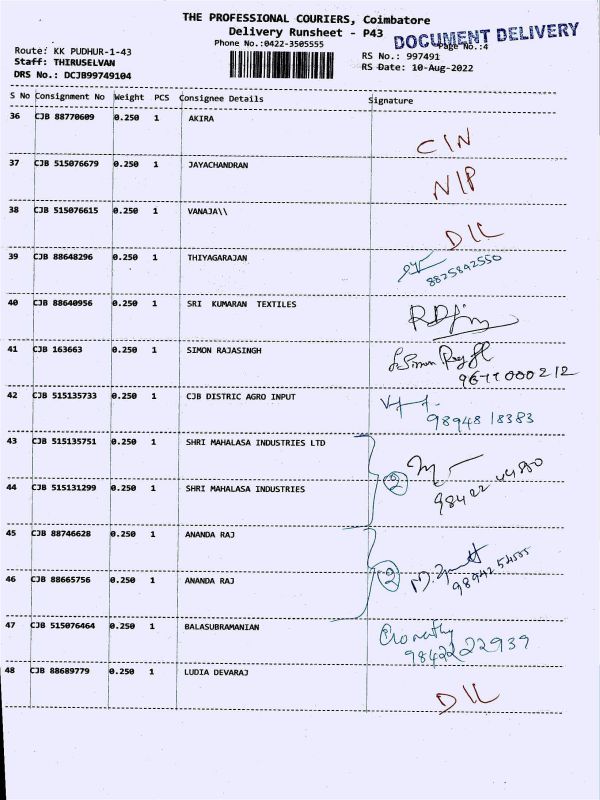 THE PROFESSIONAL COURIERS, Coimbatore
Delivery Runsheet - P43
DOCUMENT DELIVERY
Phone No.:0422-3505555
Page No.:4
Route: KK PUDHUR-1-43
RS No.: 997491
Staff: THIRUSELVAN
RS Date: 10-Aug-2022
DRS No.: DCJB99749104
S No Consignment No Weight PCS Consignee Details Signature
36 CJB 88770609 0.250 1 AKIRA
CIN
37 CJB 515076679 0.250 1 JAYACHANDRAN
N/P
38 CJB 515076615 0.250 1 VANAJA\\
D/L
39 CJB 88648296 0.250 1 THIYAGARAJAN
8825842550
40 CJB 88640956 0.250 1 SRI KUMARAN TEXTILES
41 CJB 163663 0.250 1 SIMON RAJASINGH
9677000212
42 CJB 515135733 0.250 1 CJB DISTRIC AGRO INPUT
98948 18383
43 CJB 515135751 0.250 1 SHRI MAHALASA INDUSTRIES LTD
2
44 CJB 515131299 0.250 1 SHRI MAHALASA INDUSTRIES
45 CJB 88746628 0.250 1 ANANDA RAJ
2
46 CJB 88665756 0.250 1 ANANDA RAJ
47 CJB 515076464 0.250 1 BALASUBRAMANIAN
48 CJB 88689779 0.250 1 LUDIA DEVARAJ
D/L